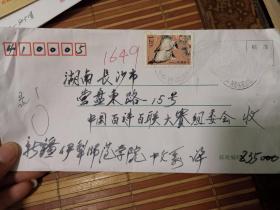 410005
1649
湖南 长沙市
营盘东路一15号
中国百诗百联大赛组委会 收
新疆伊犁师范学院 中文系
邮政编码 835000